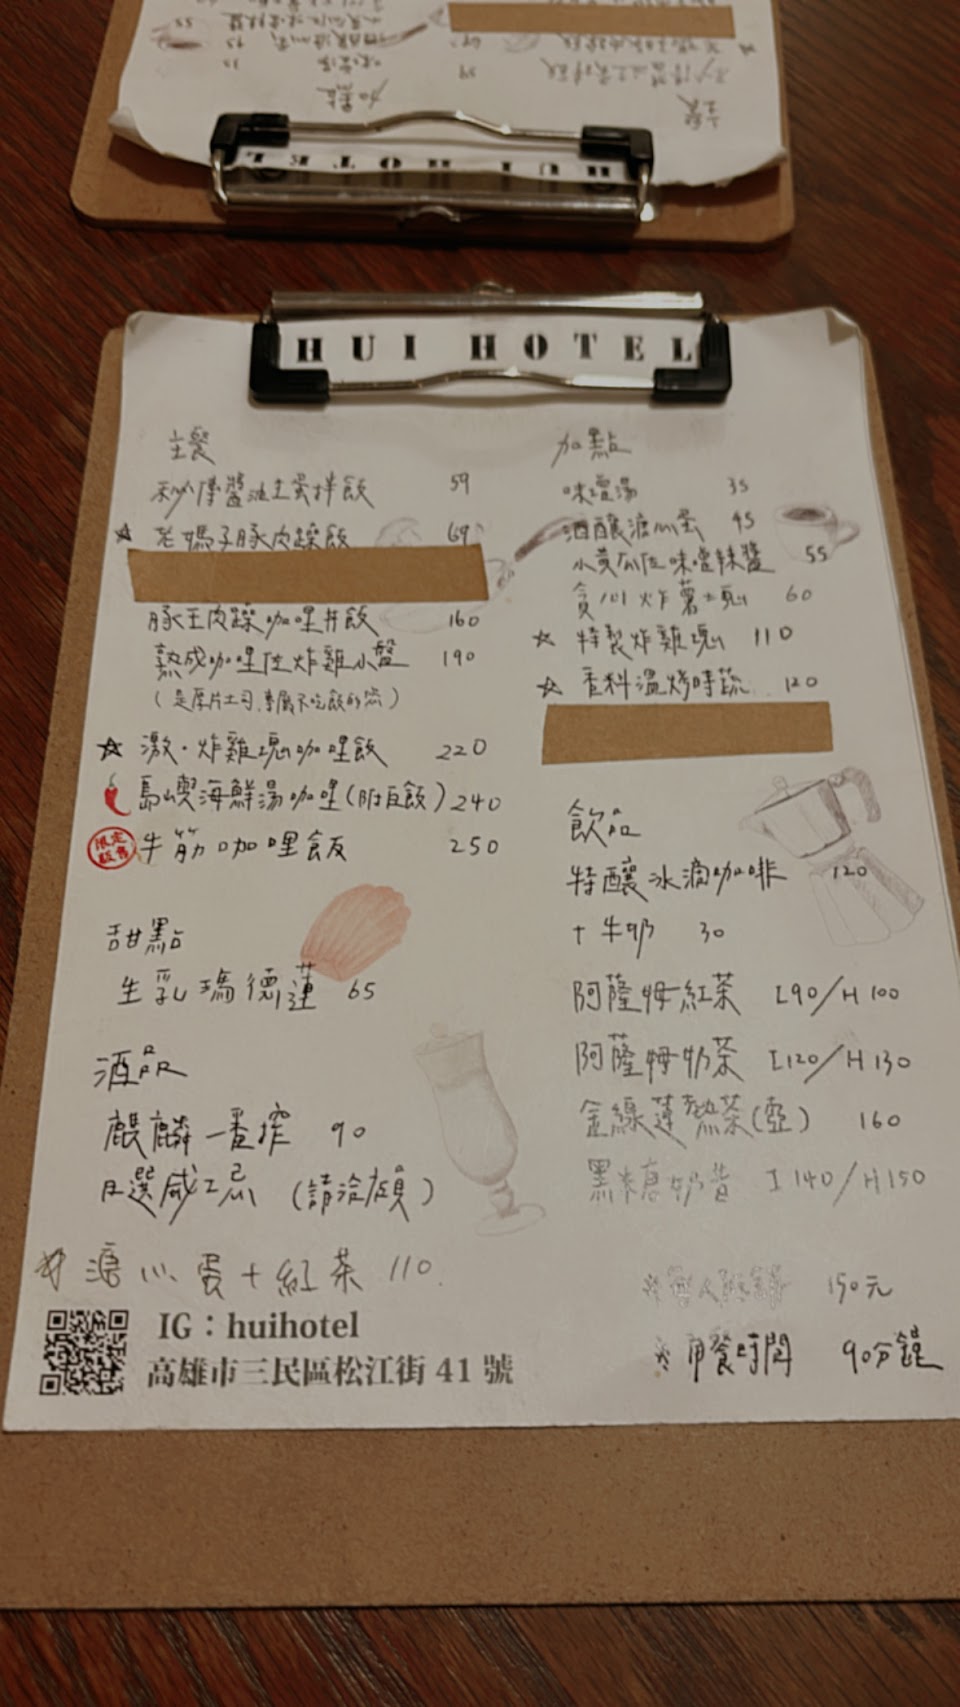 HUI HOTEL
主餐
秘傳醬油生蛋拌飯 59
☆ 老媽子豚肉躁飯 69
豚王肉躁咖哩丼飯 160
熟成咖哩佐炸雞小盤 190
(是厚片土司,專屬不吃飯的您)
☆ 激·炸雞塊咖哩飯 220
島嶼海鮮湯咖哩(附白飯) 240
限定販售 牛筋咖哩飯 250
甜點
生乳瑪德蓮 65
酒品
麒麟一番搾 90
日選威士忌 (請洽店員)
☆ 溏心蛋+紅茶 110
加點
味噌湯 35
酒釀溏心蛋 45
小黃瓜佐味噌辣醬 55
炸薯塊 60
☆ 特製炸雞塊 110
☆ 香料溫烤時蔬 120
飲品
特釀冰滴咖啡 120
+牛奶 30
阿薩姆紅茶 I90/H100
阿薩姆奶茶 I120/H130
金線蓮熱茶(壺) 160
黑糖奶昔 I140/H150
※ 150元
※ 用餐時間 90分鐘
IG：huihotel
高雄市三民區松江街 41 號